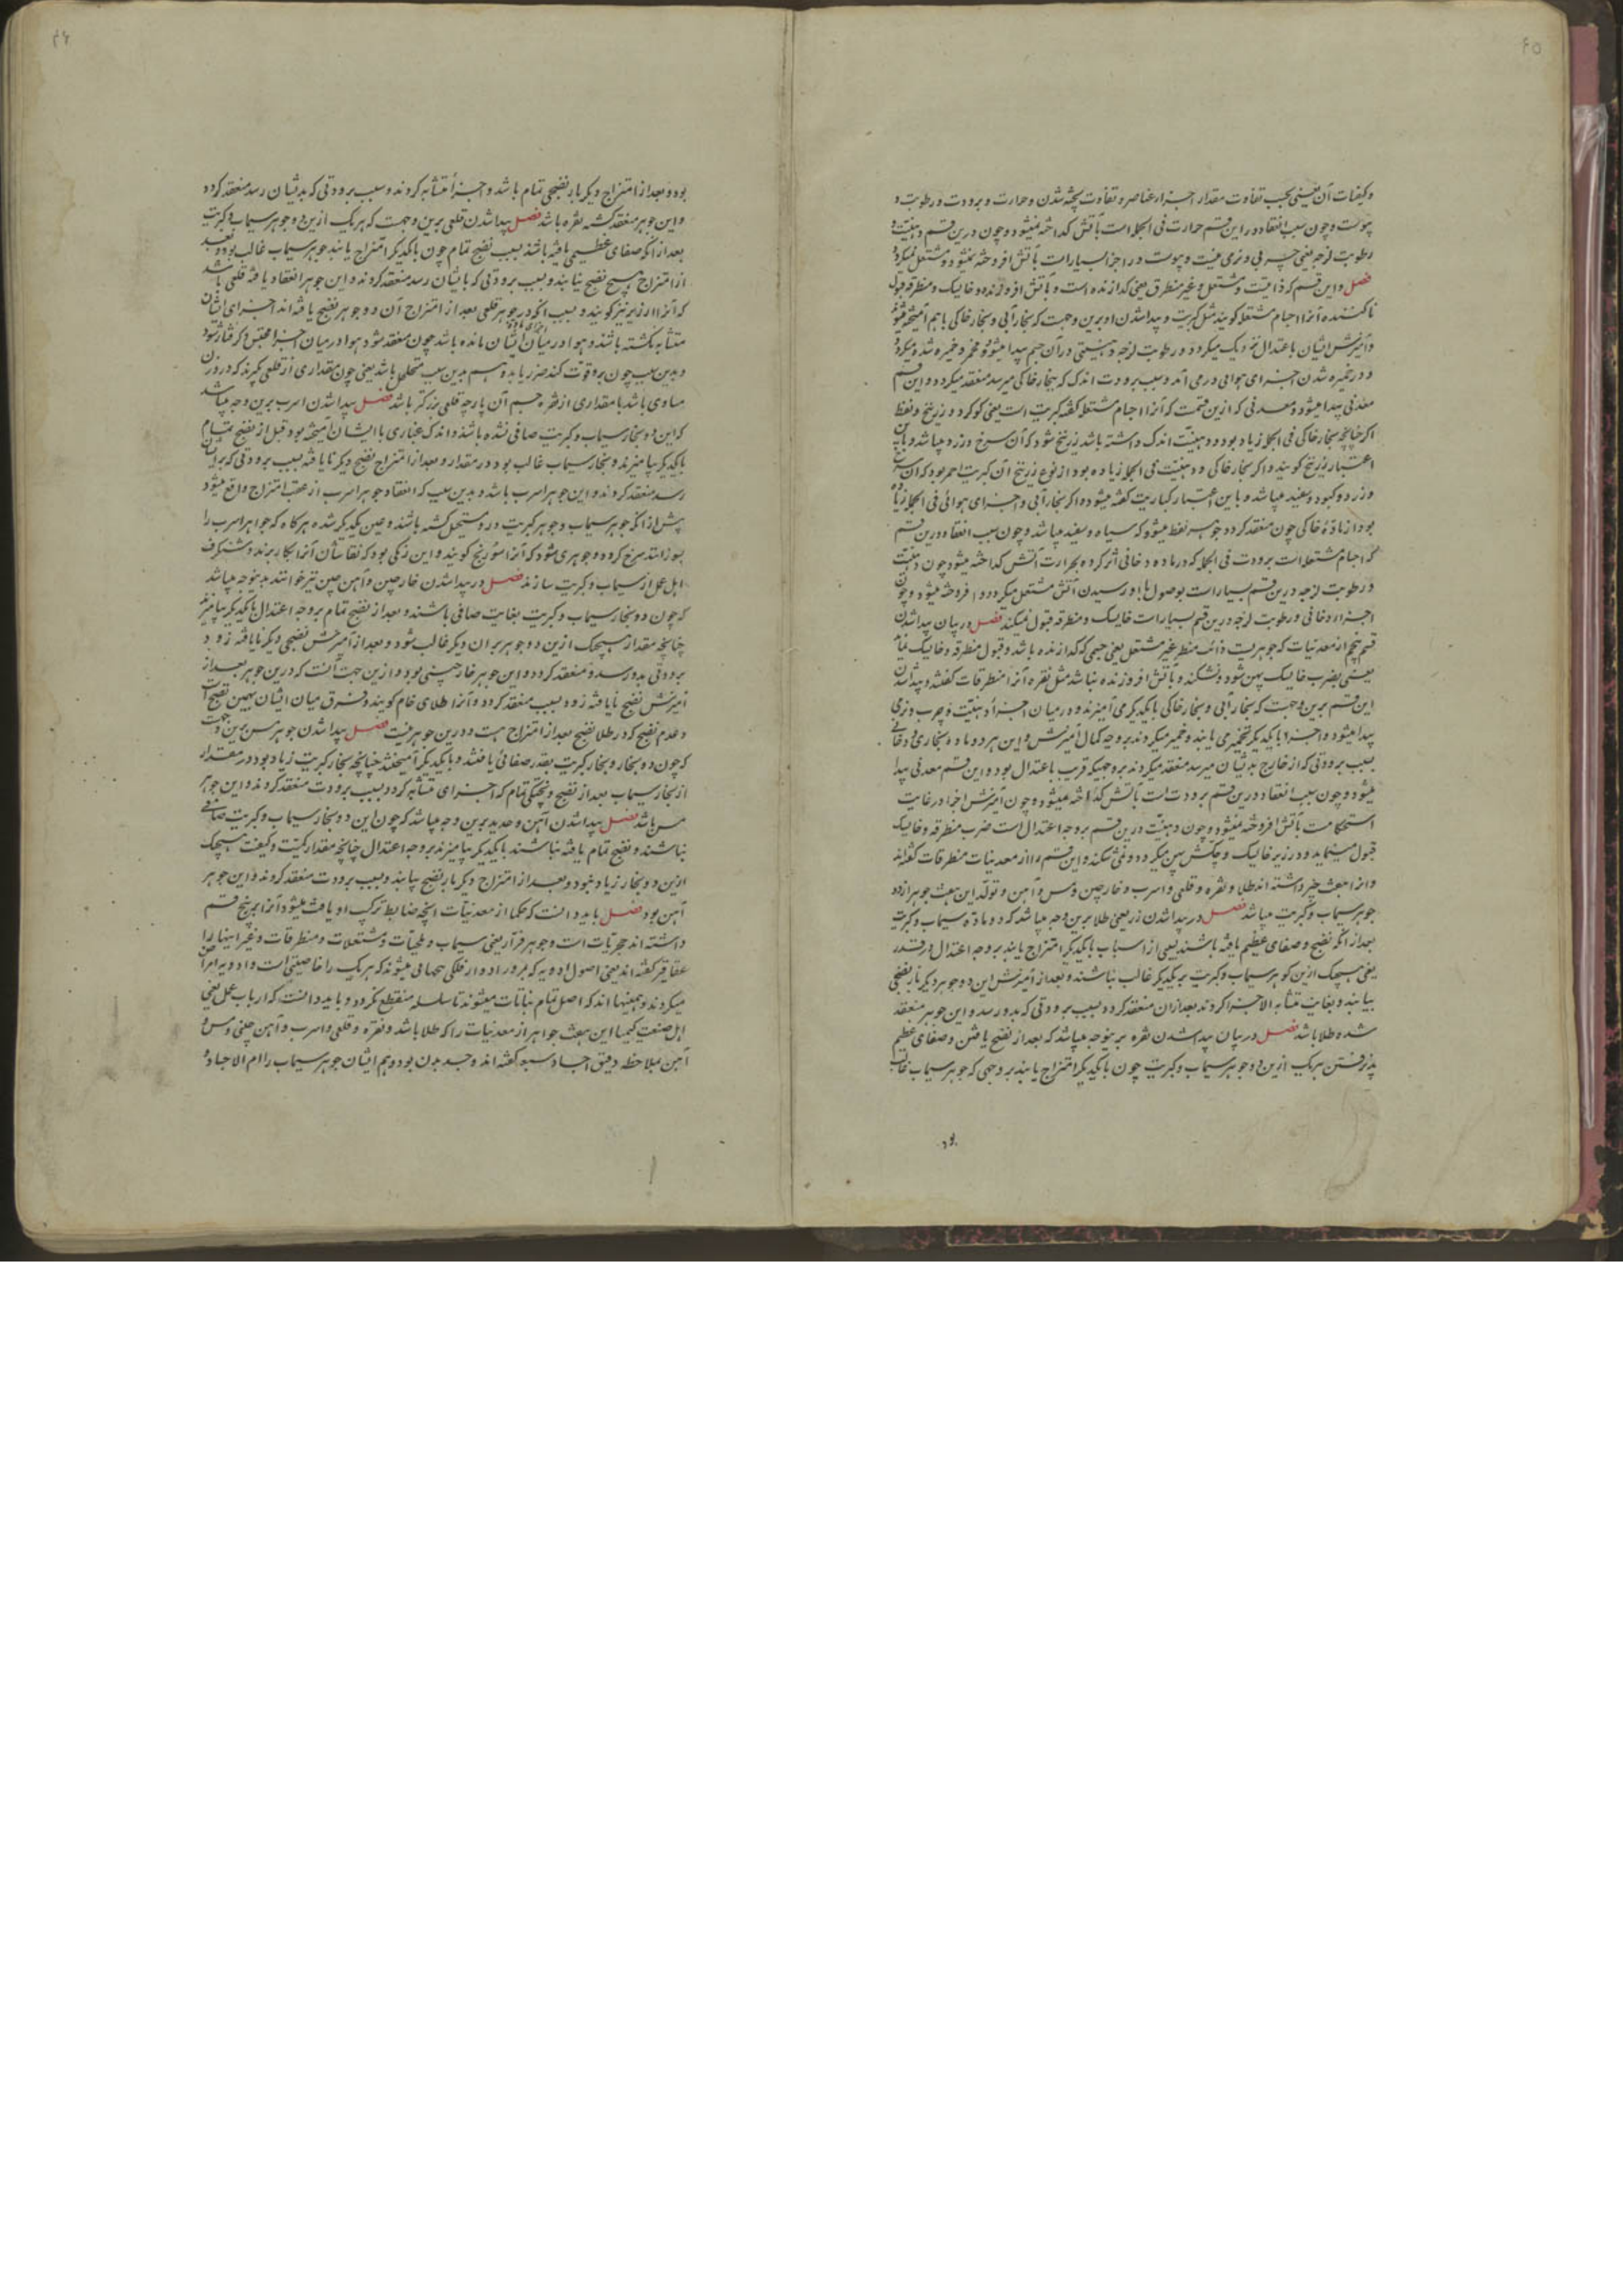 ۴۵
و کیفیات آن یعنی بحسب تفاوت مقدار اجزاء عناصر و تفاوت پخته شدن و حرارت و برودت و رطوبت و
یبوست و چون سبب انعقاد در این قسم حرارت فی الجمله است بآتش کداخته نمیشود و چون درین قسم دهنیت و
رطوبت لزجه یعنی چربی و نرمی نیست و یبوست در اجزا بسیار است بآتش افروخته نمیشود و مشتعل نمیکردد
فصل و این قسم که ذائبست و مشتعل و غیر منطرق یعنی کدازنده است و بآتش افروزنده و خایسک و منطرقه قبول
ناکننده آنرا اجسام مشتعله کویند مثل کبریت و پیدا شدن او برین وجهست که بخار آبی و بخار خاکی با هم آمیخته میشود
و آمیزش ایشان باعتدال نزدیک میکردد و رطوبت لزجه و دهنیتی در آن جسم پیدا میشود و مخمر و خمیره شده میکردد
و در خمیره شدن اجزای هوایی در می آید و بسبب برودت اندک که بخار خاکی میرسد منعقد میکردد و این قسم
معدنی پیدا میشود و معدنی که ازین قسمت که آنرا اجسام مشتعله کفته کبریت است یعنی کوکرد و زرنیخ و نفط
اکر چنانچه بخار خاکی فی الجمله زیاد بود و دهنیت اندک داشته باشد زرنیخ شود که آن سرخ و زرد میباشد و باین
اعتبار زرنیخ کویند و اکر بخار خاکی و دهنیت فی الجمله زیاده بود از نوع زرنیخ آن کبریت احمر بود که آن سرخ
و زرد و کبود و سفید میباشد و باین اعتبار کباریت کفته میشود و اکر بخار آبی و اجزای هوائی فی الجمله زیاده
بود از مادهٔ خاکی چون منعقد کردد جوهر نفط میشود که سیاه و سفید میباشد و چون سبب انعقاد درین قسم
که اجسام مشتعله است برودت فی الجمله که در ماده دخانی اثر کرده بحرارت آتش کداخته میشود چون دهنیت
و رطوبت لزجه درین قسم بسیار است بوصول و رسیدن آتش مشتعل میکردد و افروخته میشود و چون
اجزاء دخانی و رطوبت لزجه درین قسم بسیار است خایسک و منطرقه قبول نمیکند فصل در بیان پیدا شدن
قسم پنجم از معدنیات که جوهریست ذائب منطرق غیر مشتعل یعنی جسمی که کدازنده باشد و قبول منطرقه و خایسک نماید
یعنی بضرب خایسک پهن شود و نشکند و بآتش افروزنده نباشد مثل نقره آنرا منطرقات کفته و پیدا شدن
این قسم برین وجهست که بخار آبی و بخار خاکی با یکدیکر می آمیزند و در میان اجزاء دهنیت و چرب و نرمی
پیدا میشود و اجزاء با یکدیکر تخمیری یابند و خمیر میکردند بر وجه کمال آمیزش و این هر دو ماده بخاری و دخانی
بسبب برودتی که از خارج بدیشان میرسد منعقد میکردند بروجهیکه قریب باعتدال بود و این قسم معدنی پیدا
میشود و چون سبب انعقاد درین قسم برودت است بآتش کداخته میشود و چون آمیزش اجزا در غایت
استحکامست بآتش افروخته نمیشود و چون دهنیت درین قسم بر وجه اعتدال است ضرب منطرقه و خایسک
قبول مینماید و در زیر خایسک و چکش پهن میکردد و نمی شکند و این قسم را از معدنیات منطرقات کفته اند
و آنرا هفت چیز داشته اند طلا و نقره و قلعی و اسرب و خارچین و مس و آهن و تولد این هفت جوهر از دو
جوهر سیماب و کبریت میباشد فصل در پیدا شدن زر یعنی طلا برین وجه میباشد که دو ماده سیماب و کبریت
بعد از آنکه نضیج و صفای عظیم یافته باشند بسببی از اسباب با یکدیکر امتزاج یابند بر وجه اعتدال در قدر
یعنی هیچیک ازین کوهر سیماب و کبریت بر یکدیکر غالب نباشند و بعد از آمیزش این دو جوهر دیکر بار نضجی
بیابند و بغایت متشابه الاجزا کردند بعد از آن منعقد کردد بسبب برودتی که بدو رسد و این جوهر منعقد
شده طلا باشد فصل در بیان پیدا شدن نقره برینوجه میباشد که بعد از نضج یافتن و صفای عظیم
پذیرفتن هریک ازین دو جوهر سیماب و کبریت چون با یکدیکر امتزاج یابند بر وجهی که جوهر سیماب غالب
بود
۴۶
بود و بعد از امتزاج دیکر بار نضجی تمام باشد و اجزاء متشابه کردند و بسبب برودتی که بدیشان رسد منعقد کردد
و این جوهر منعقد کشته نقره باشد فصل پیدا شدن قلعی برین وجهست که هریک ازین دو جوهر سیماب و کبریت
بعد از آنکه صفای عظیمی یافته باشند بسبب نضیج تمام چون با یکدیکر امتزاج یابند جوهر سیماب غالب بود و بعد
از امتزاج هیچ نضج نیابند و بسبب برودتی که بایشان رسد منعقد کردند و این جوهر انعقاد یافته قلعی باشد
که آنرا ارزیز نیز کویند و بسبب آنکه در جوهر قلعی بعد از امتزاج آن دو جوهر نضیج یافته اند اجزای ایشان
متشابه نکشته باشند و هوا در میان ایشان مانده باشد چون منعقد شود هوا در میان اجزا محتبس و کرفتار شود
و بدین سبب چون برو قوت کنند صریر یابد و هم بدین سبب متخلخل باشد یعنی چون مقداری از قلعی کیرند که در وزن
مساوی باشد با مقداری از نقره جسم آن پارچه قلعی بزرکتر باشد فصل پیدا شدن اسرب برین وجه میباشد
که این دو بخار سیماب و کبریت صافی نشده باشند و اندک غباری با ایشان آمیخته بود قبل از نضیج تمام
با یکدیکر بیامیزند و بخار سیماب غالب بود در مقدار و بعد از امتزاج نضیج دیکر نا یافته بسبب برودتی که بر ایشان
رسد منعقد کردند و این جوهر اسرب باشد و بدین سبب که انعقاد جوهر اسرب از عقب امتزاج واقع میشود
پیش از آنکه جوهر سیماب و جوهر کبریت درو مستحیل کشته باشند و عین یکدیکر شده هرکاه که جواهر اسرب را
بسوزانند سرخ کردد و جوهری شود که آنرا اسرنج کویند و این رنکی بود که نقاشان آنرا بکار برند و شنکرف
اهل عمل از سیماب و کبریت سازند فصل در پیدا شدن خارچین و آهن چین نیز خوانند بدینوجه میباشد
که چون دو بخار سیماب و کبریت بغایت صافی باشند و بعد از نضیج تمام بر وجه اعتدال با یکدیکر بیامیزند
چنانچه مقدار هیچیک ازین دو جوهر بر آن دیکر غالب نشود و بعد از آمیزش نضجی دیکر نا یافته زود
برودتی بدو رسد و منعقد کردد و این جوهر خارچینی بود و ازین جهت آنست که درین جوهر بعد از
آمیزش نضیج نا یافته زود بسبب منعقد کردد و آنرا طلای خام کویند و فرق میان ایشان بهمین نضیجست
و عدم نضیج که در طلا نضیج بعد از امتزاج هست و درین جوهر نیست فصل پیدا شدن جوهر مس برین وجهست
که چون دو بخار و بخار کبریت بقدر صفائی یافتند و با یکدیکر آمیختند چنانچه بخار کبریت زیاد بود در مقدار
از بخار سیماب بعد از نضیج و پختکی تمام که اجزای متشابه کردد بسبب برودت منعقد کردند و این جوهر
مس باشد فصل پیدا شدن آهن و حدید برین وجه میباشد که چون این دو بخار سیماب و کبریت صافی
نباشند و نضیج تمام یافته نباشند با یکدیکر بیامیزند بر وجه اعتدال چنانچه مقدار کمیت و کیفیت هیچیک
ازین دو بخار زیاد نبود و بعد از امتزاج دیکر بار نضیج یابند و بسبب برودت منعقد کردند و این جوهر
آهن بود فصل باید دانست که حکما از معدنیات آنچه ضابط ترکیب او یافت میشود آنرا بر پنج قسم
داشته اند حجریات است و جوهر فرار یعنی سیماب و ملحیات و مشتعلات و منطرقات و غیر اینها را
عقاقیر کفته اند یعنی اصول ادویه که بمرور ادوار فلکی میشوند که هریک را خاصیتی است و ادویه امراض
میکردند و همینها اند که اصل تمام نباتات میشوند تا سلسله منقطع نکردد و باید دانست که ارباب عمل یعنی
اهل صنعت کیمیا این هفت جواهر از معدنیات را که طلا باشد و نقره و قلعی و اسرب و آهن چینی و مس و
آهن بملاحظه دقیق اجساد سبعه کفته اند و جسد بدن بود و هم ایشان جوهر سیماب را ام الاجساد و